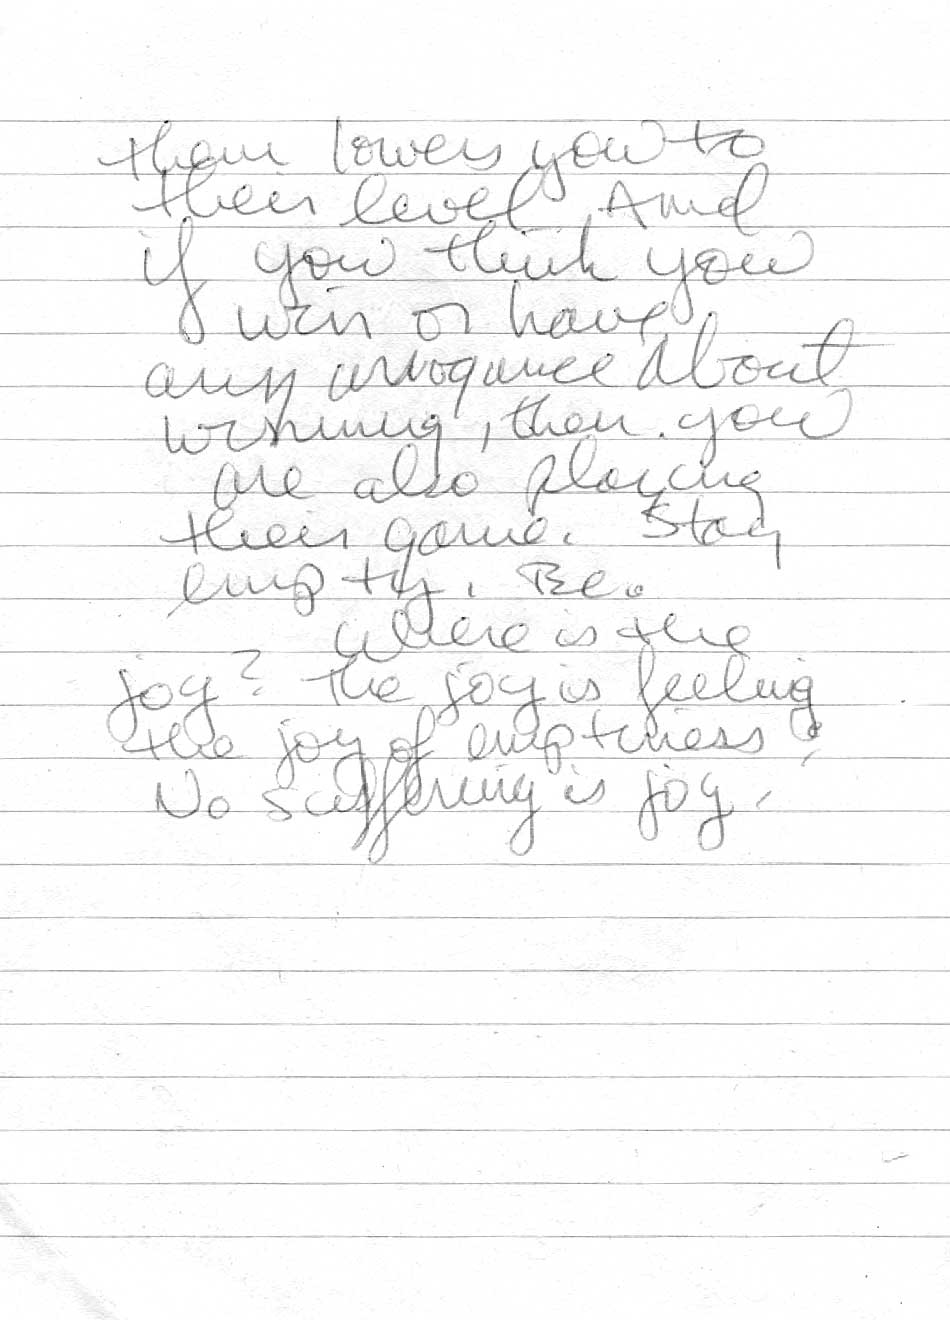 them lowers you to
their level. And
if you think you
win or have
any arrogance about
winning, then you
are also playing
their game. Stay
empty. Be.
Where is the
joy? The joy is feeling
the joy of emptiness!
No suffering is joy.